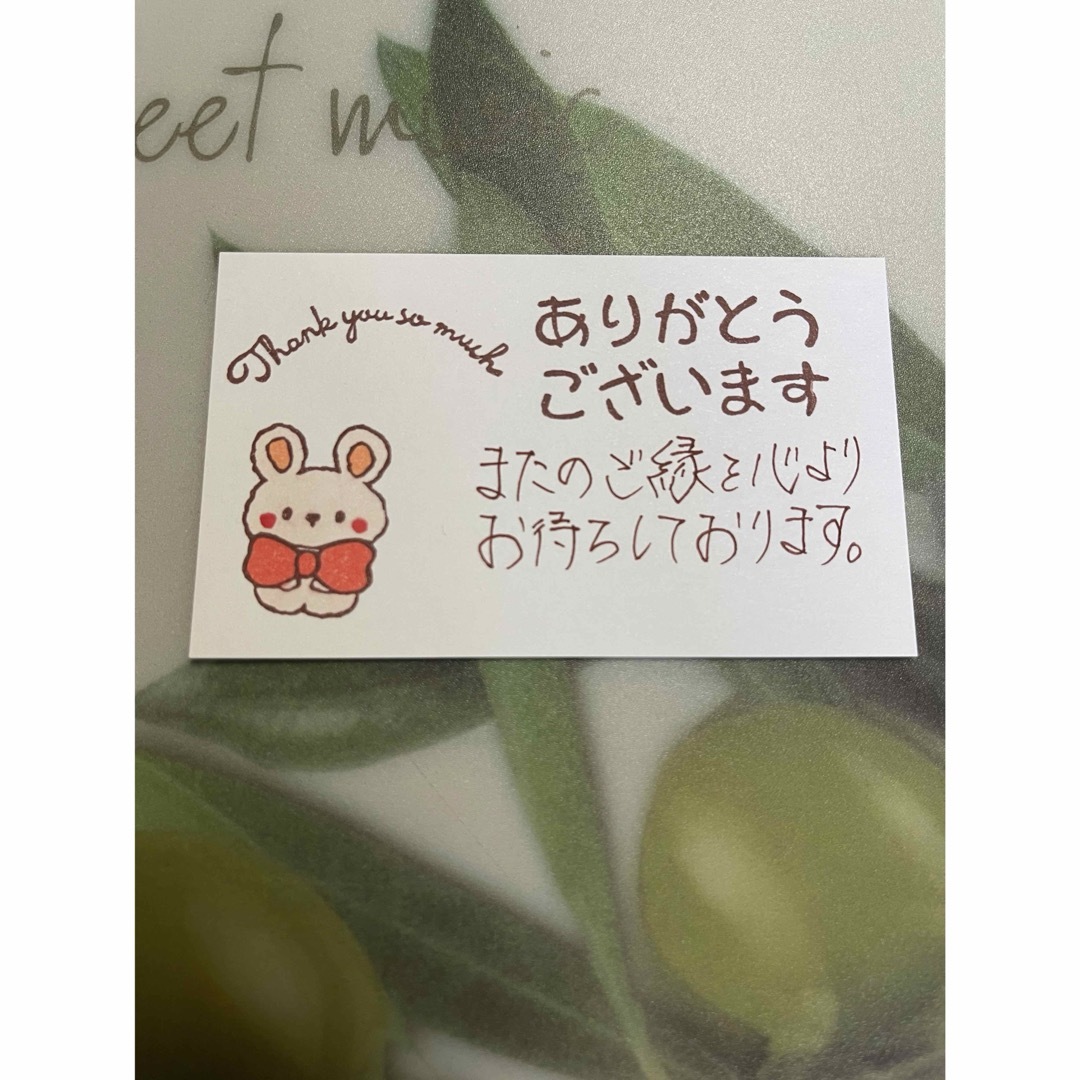 eet
Thank you so much
ありがとう
ございます
またのご縁を心より
お待ちしております。